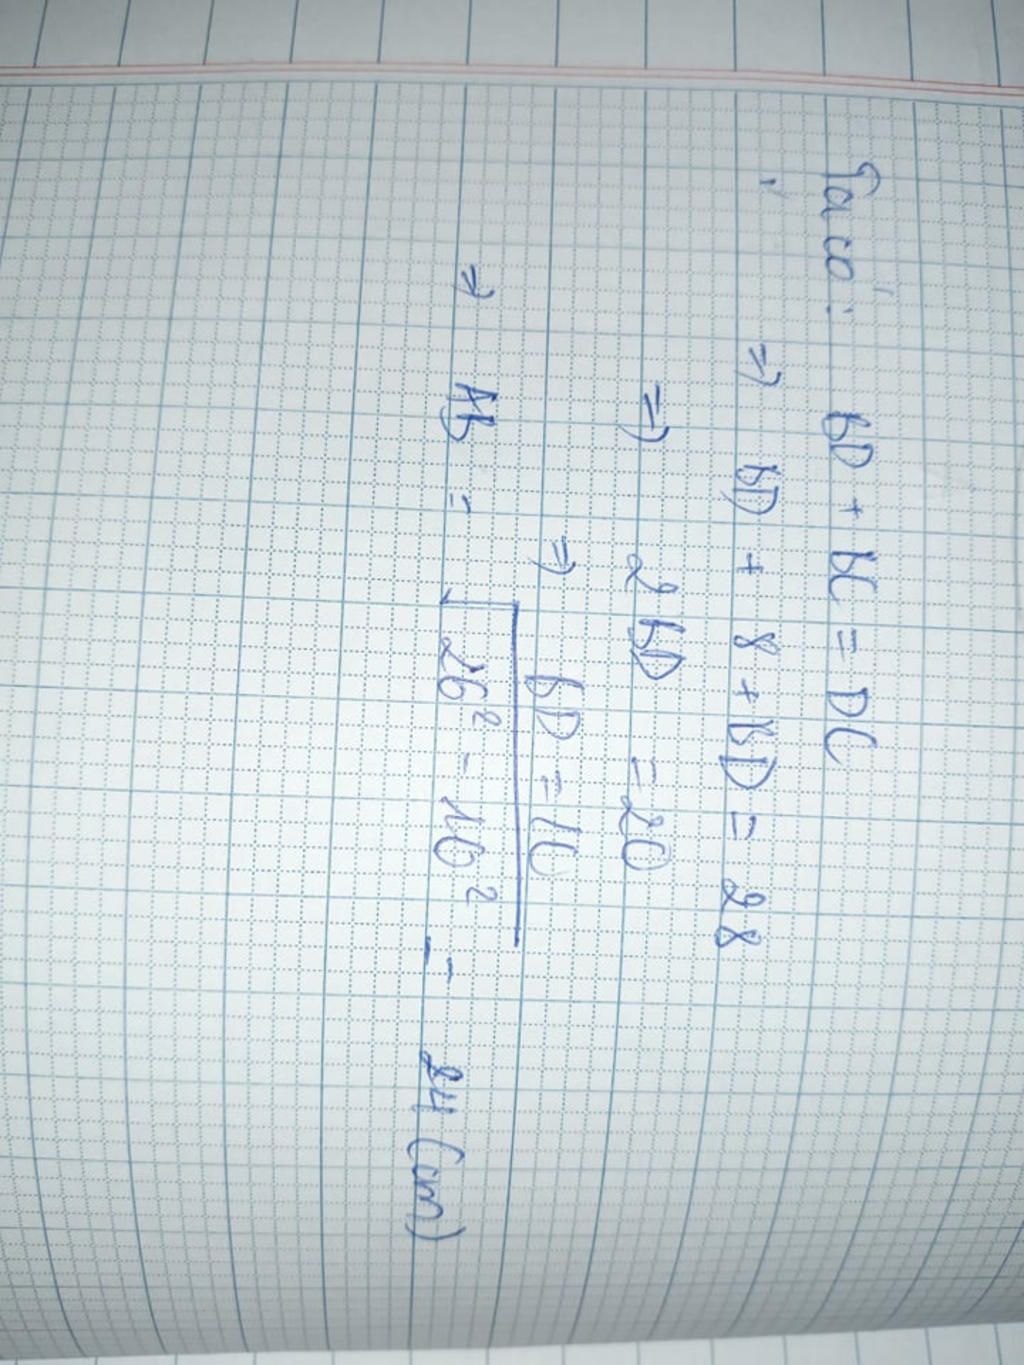 Ta có: BD + BC = DC
=> BD + 8 + BD = 28
=> 2BD = 20
=> BD = 10
=> AB = √26² - 10² = 24 (cm)